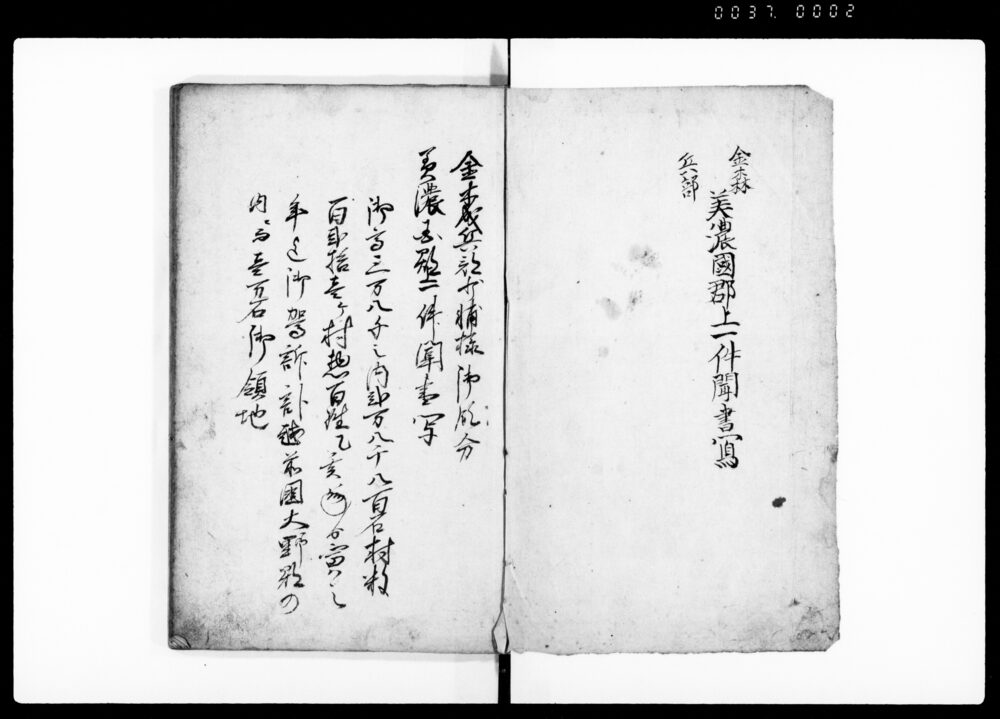 0037 0002
金森
兵部
美濃國郡上一件聞書寫
金森兵部少輔様御領分
美濃国郡上一件聞書写
御高三万八千之内弐万八千八百石村数
百弐拾壱ヶ村惣百姓乙亥年ゟ當
年迄御駕訴訟越前國大野郡の
内ニ而壱万石御領地